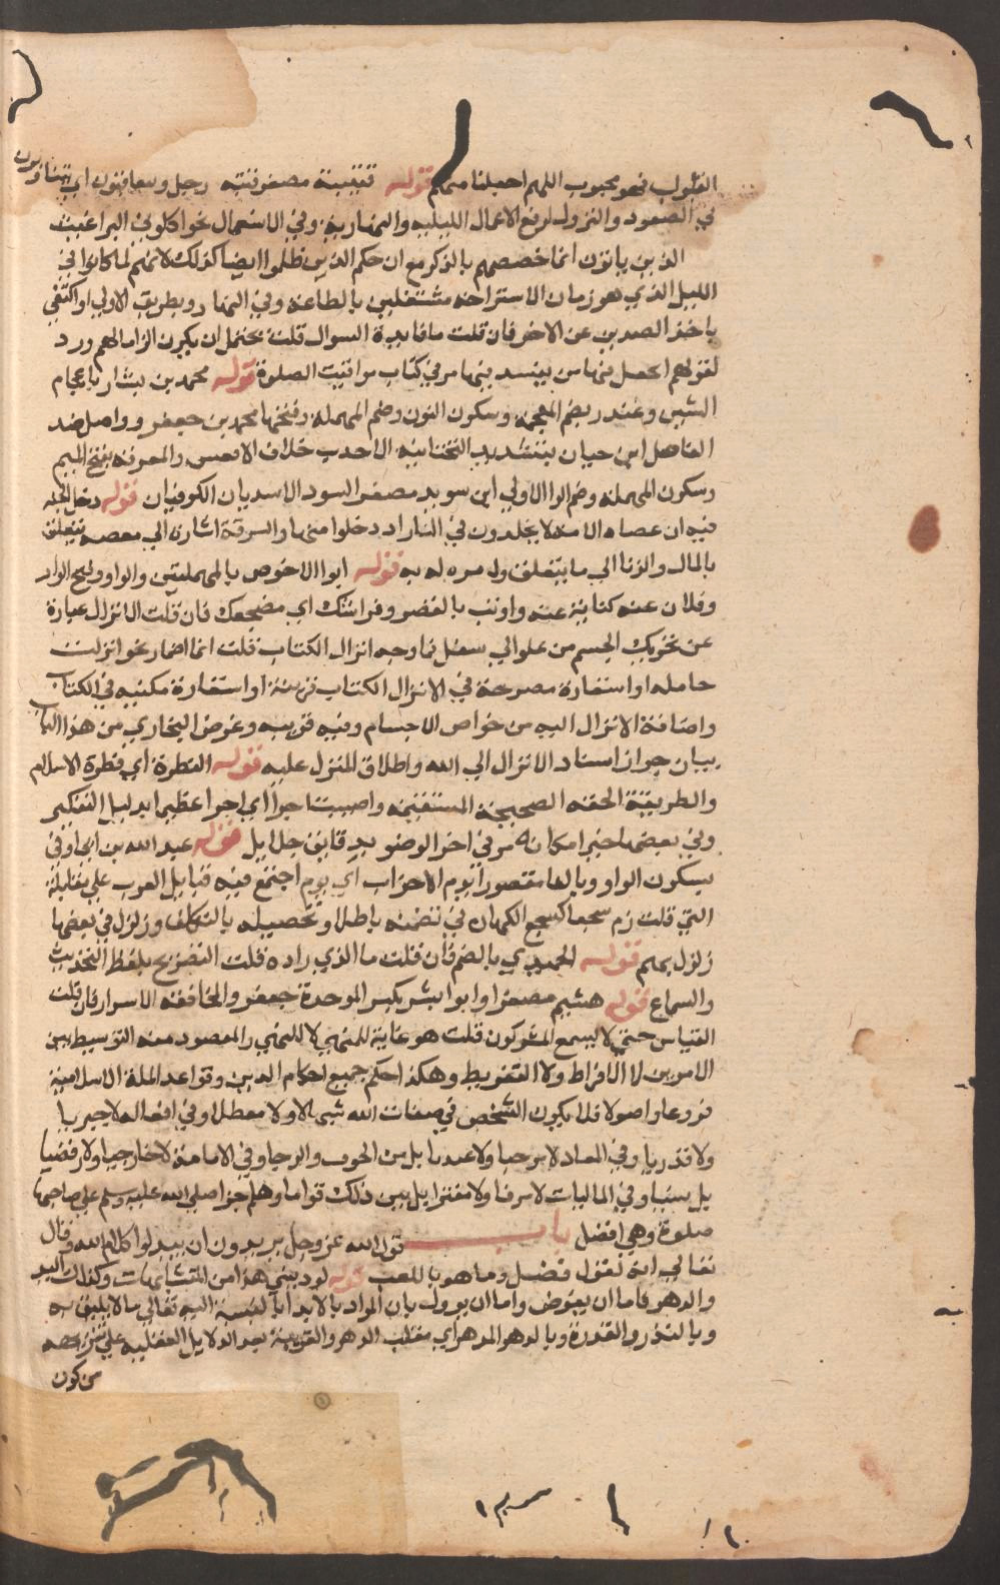 القلوب فهو محبوب اللهم اجعلنا منهم قوله قتيبة مصغر قتبه رجل ويتعاقبون اي يتناوبون
في الصعود والنزول لرفع الاعمال الليليه والنهارية وفي الاستعمال نحو اكلوني البراغيث
الذين باتوا انما خصصهم بالذكر مع ان حكم الذين ظلوا ايضا كذلك لانهم لما كانوا في
الليل الذي هو زمان الاستراحه مشتغلين بالطاعه وفي النهار وبطريق الاولي او اكتفي
باحد الضدين عن الاخر فان قلت ما فايدة السوال قلت يحتمل ان يكون الزاما لهم ورد
لقولهم اتجعل فيها من يفسد فيها مر في كتاب مواقيت الصلوة قوله محمد بن بشار باعجام
الشين وغندر بضم المعجمة وسكون النون وضم المهملة وفتحها محمد بن جعفر وواصل ضد
الفاصل ابن حيان بتشديد التحتانية الاحدب خلاف الاقعس والمعرور بفتح الميم
وسكون المهملة وضم الراء الاولي ابن سويد مصغر السود الاسديان الكوفيان قوله دخل الجنة
فيه ان عصاة الامة لا يخلدون في النار اذ دخلوا منها والسرقة اشارة الي معصيه تتعلق
بالمال والزنا الي ما يتعلق به قوله ابوا الاحوص بالمهملتين والواو
وفلان عنه كناية عنه واونب بالقصر وفراشك اي مضجعك فان قلت الانزال عبارة
عن تحريك الجسم من علو الي سفل فما وجه انزال الكتاب قلت اما اضمار نحو انزلت
حامله او استعارة مصرحة في الانزال الكتاب قرينة او استعارة مكنيه في الكتاب
واضافة الانزال اليه من خواص الاجسام وفيه قرينه وغرض البخاري من هذا الباب
بيان جواز اسناد الانزال الي الله واطلاق المنزل عليه قوله الفطرة اي فطرة الاسلام
والطريقة الحقه الصحيحة المستقيمه واصبت اجرا اي اجرا عظيما بدليل التنكير
وفي بعضها خيرا مكانه مر في اخر الوضو بدقايق جلايل قوله عبد الله بن ابي اوفي
بسكون الواو وبالفا مقصورا يوم الاحزاب اي يوم اجتمع فيه قبايل العرب علي مقاتلة
النبي قلت ذم سجعا كسجع الكهان في تضمنه باطلا وتحصيله بالتكلف وزلزل في بعضها
زلزل بهم قوله الحميدي بالضم فان قلت ما الذي زاده قلت التصريح بلفظ التحديث
والسماع قوله هشيم مصغرا وابو بشر بكسر الموحدة جعفر والمخافته الاسرار فان قلت
القياس حتي لا يسمع المشركون قلت هو غاية للمنهي لا للنهي والمقصود منه التوسيط بين
الامرين لا الافراط ولا التفريط وهكذا حكم جميع احكام الدين وقواعد الملة الاسلامية
فروعا واصولا فلا يكون الشخص في صفات الله شبهيا ولا معطلا وفي افعاله لا جبريا
ولا قدريا وفي المعاد لا مرجيا ولا عيديا بل من الخوف والرجا وفي الامامة لا خارجيا ولا رفضيا
بل سنيا وفي الماليات لا مسرفا ولا مقترا بل بين ذلك قواما وهلم جرا صلي الله عليه وسلم علي صاحبها
صلوة وهي افضل باب قول الله عز وجل يريدون ان يبدلوا كلام الله وقال
تعالي انه لقول فصل وما هو باللعب قوله يوذيني هذا من المتشابهات وكذلك اليد
والدهر فاما ان يفوض واما ان يوول بان المراد بالايذا النسبة اليه تعالي ما لا يليق به
وباليد القدرة وبالدهر المدهر اي مقلب الدهر والقرينة بعد الدلايل العقليه علي تنزيهه
من كون